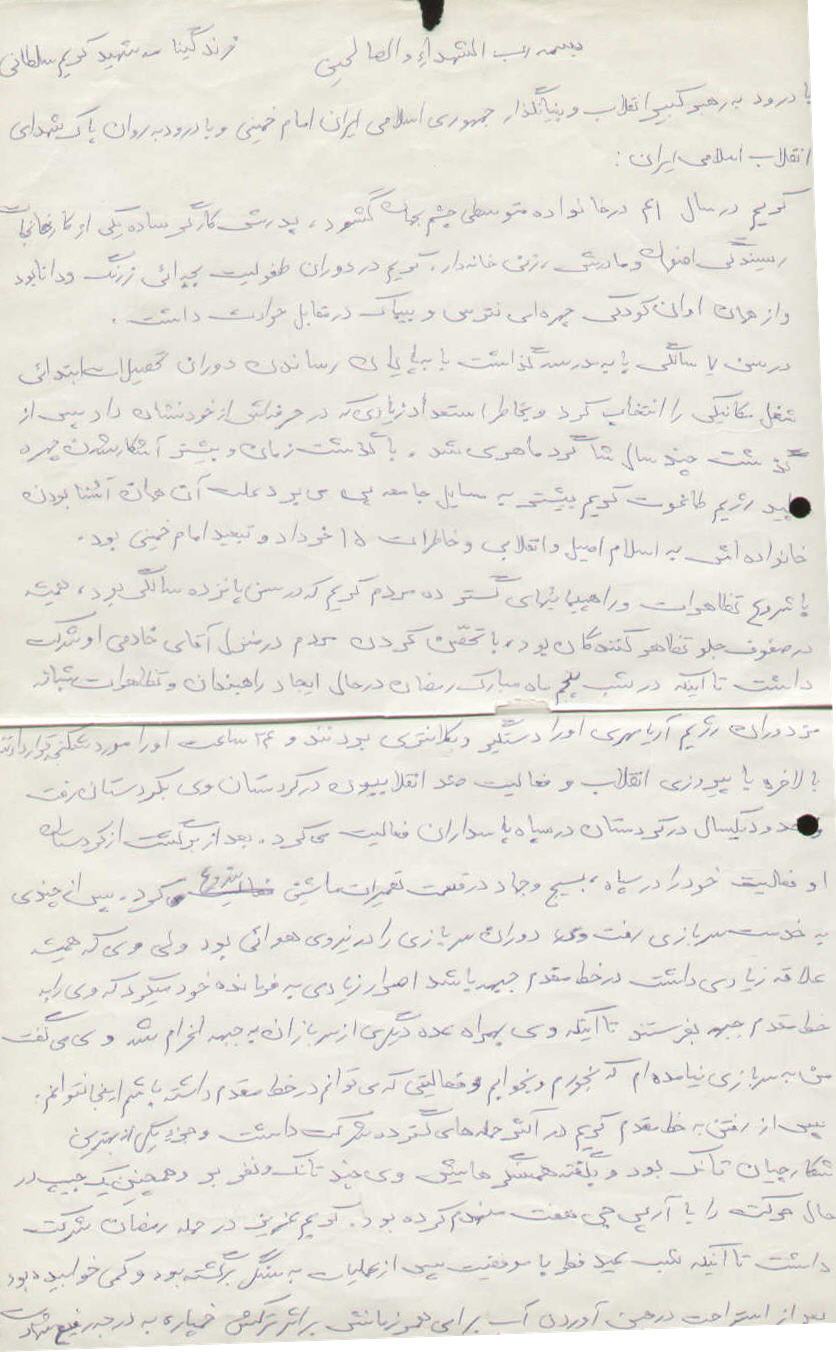 بسمه رب الشهداء و الصالحین
زندگینامه شهید کریم سلطانی
با درود به رهبر کبیر انقلاب و بنیانگذار جمهوری اسلامی ایران امام خمینی و با درود به روان پاک شهدای
انقلاب اسلامی ایران :
کریم در سال ۴۱ در خانواده متوسطی چشم بجهان گشود، پدرش کارگر ساده یکی از کارخانجات
ریسندگی اصفهان و مادرش زنی خانه‌دار. کریم در دوران طفولیت بچه‌ائی زرنگ و دانا بود
و از همان اوان کودکی چهره‌ای نترس و بیباک در مقابل حوادث داشت.
در سن ۷ سالگی پا به مدرسه گذاشت با به پایان رساندن دوران تحصیلات ابتدائی
شغل مکانیکی را انتخاب کرد و بخاطر استعداد زیادی که در حرفه‌اش از خود نشان داد پس از
گذشت چند سال شاگرد ماهری شد. با گذشت زمان و بیشتر آشکار شدن چهره
پلید رژیم طاغوت کریم بیشتر به مسایل جامعه پی می برد علت آن همان آشنا بودن
خانواده‌اش به اسلام اصیل و انقلابی و خاطرات ۱۵ خرداد و تبعید امام خمینی بود.
با شروع تظاهرات و راهپیمائیهای گسترده مردم کریم که در سن پانزده سالگی بود، همیشه
در صفوف جلو تظاهر کنندگان بود، با تحصن کردن مردم در منزل آقای خادمی او شرکت
داشت تا اینکه در شب پنجم ماه مبارک رمضان در حال ایجاد راهبندان و تظاهرات شبانه
مزدوران رژیم آریامهری او را دستگیر و بکلانتری بودند و ۲۴ ساعت او را مورد شکنجه قرار دادند
بالاخره با پیروزی انقلاب و فعالیت ضد انقلابیون در کردستان وی بکردستان رفت
و حدود یکسال در کردستان در سپاه پاسداران فعالیت می کرد. بعد از برگشت از کردستان
او فعالیت خود را در سپاه، بسیج و جهاد در قسمت تعمیرات ماشین شروع کرد. پس از چندی
به خدمت سربازی رفت وی دوران سربازی را در نیروی هوائی بود ولی وی که همیشه
علاقه زیادی داشت در خط مقدم جبهه باشد اصرار زیادی به فرمانده خود میکرد که وی را به
خط مقدم جبهه بفرستند تا اینکه وی بهمراه عده دیگری از سربازان به جبهه اعزام شد و وی می گفت
من به سربازی نیامده ام که بخورم و بخوابم و فعالیتی که می توانم در خط مقدم داشته باشم اینجا نتوانم.
پس از رفتن به خط مقدم کریم در اکثر حمله های گسترده شرکت داشت و خود یکی از بهترین
شکارچیان تانک بود و بگفته همسنگرهایش وی چند تانک و نفربر و همچنین یک جیپ در
حال حرکت را با آرپی جی هفت منهدم کرده بود. کریم عزیز در حمله رمضان شرکت
داشت تا اینکه شب عید فطر با موفقیت پس از عملیات به سنگر برگشته بود و کمی خوابیده بود
بعد از استراحت در حین آوردن آب برای همرزمانش بر اثر ترکش خمپاره به درجه رفیع شهادت